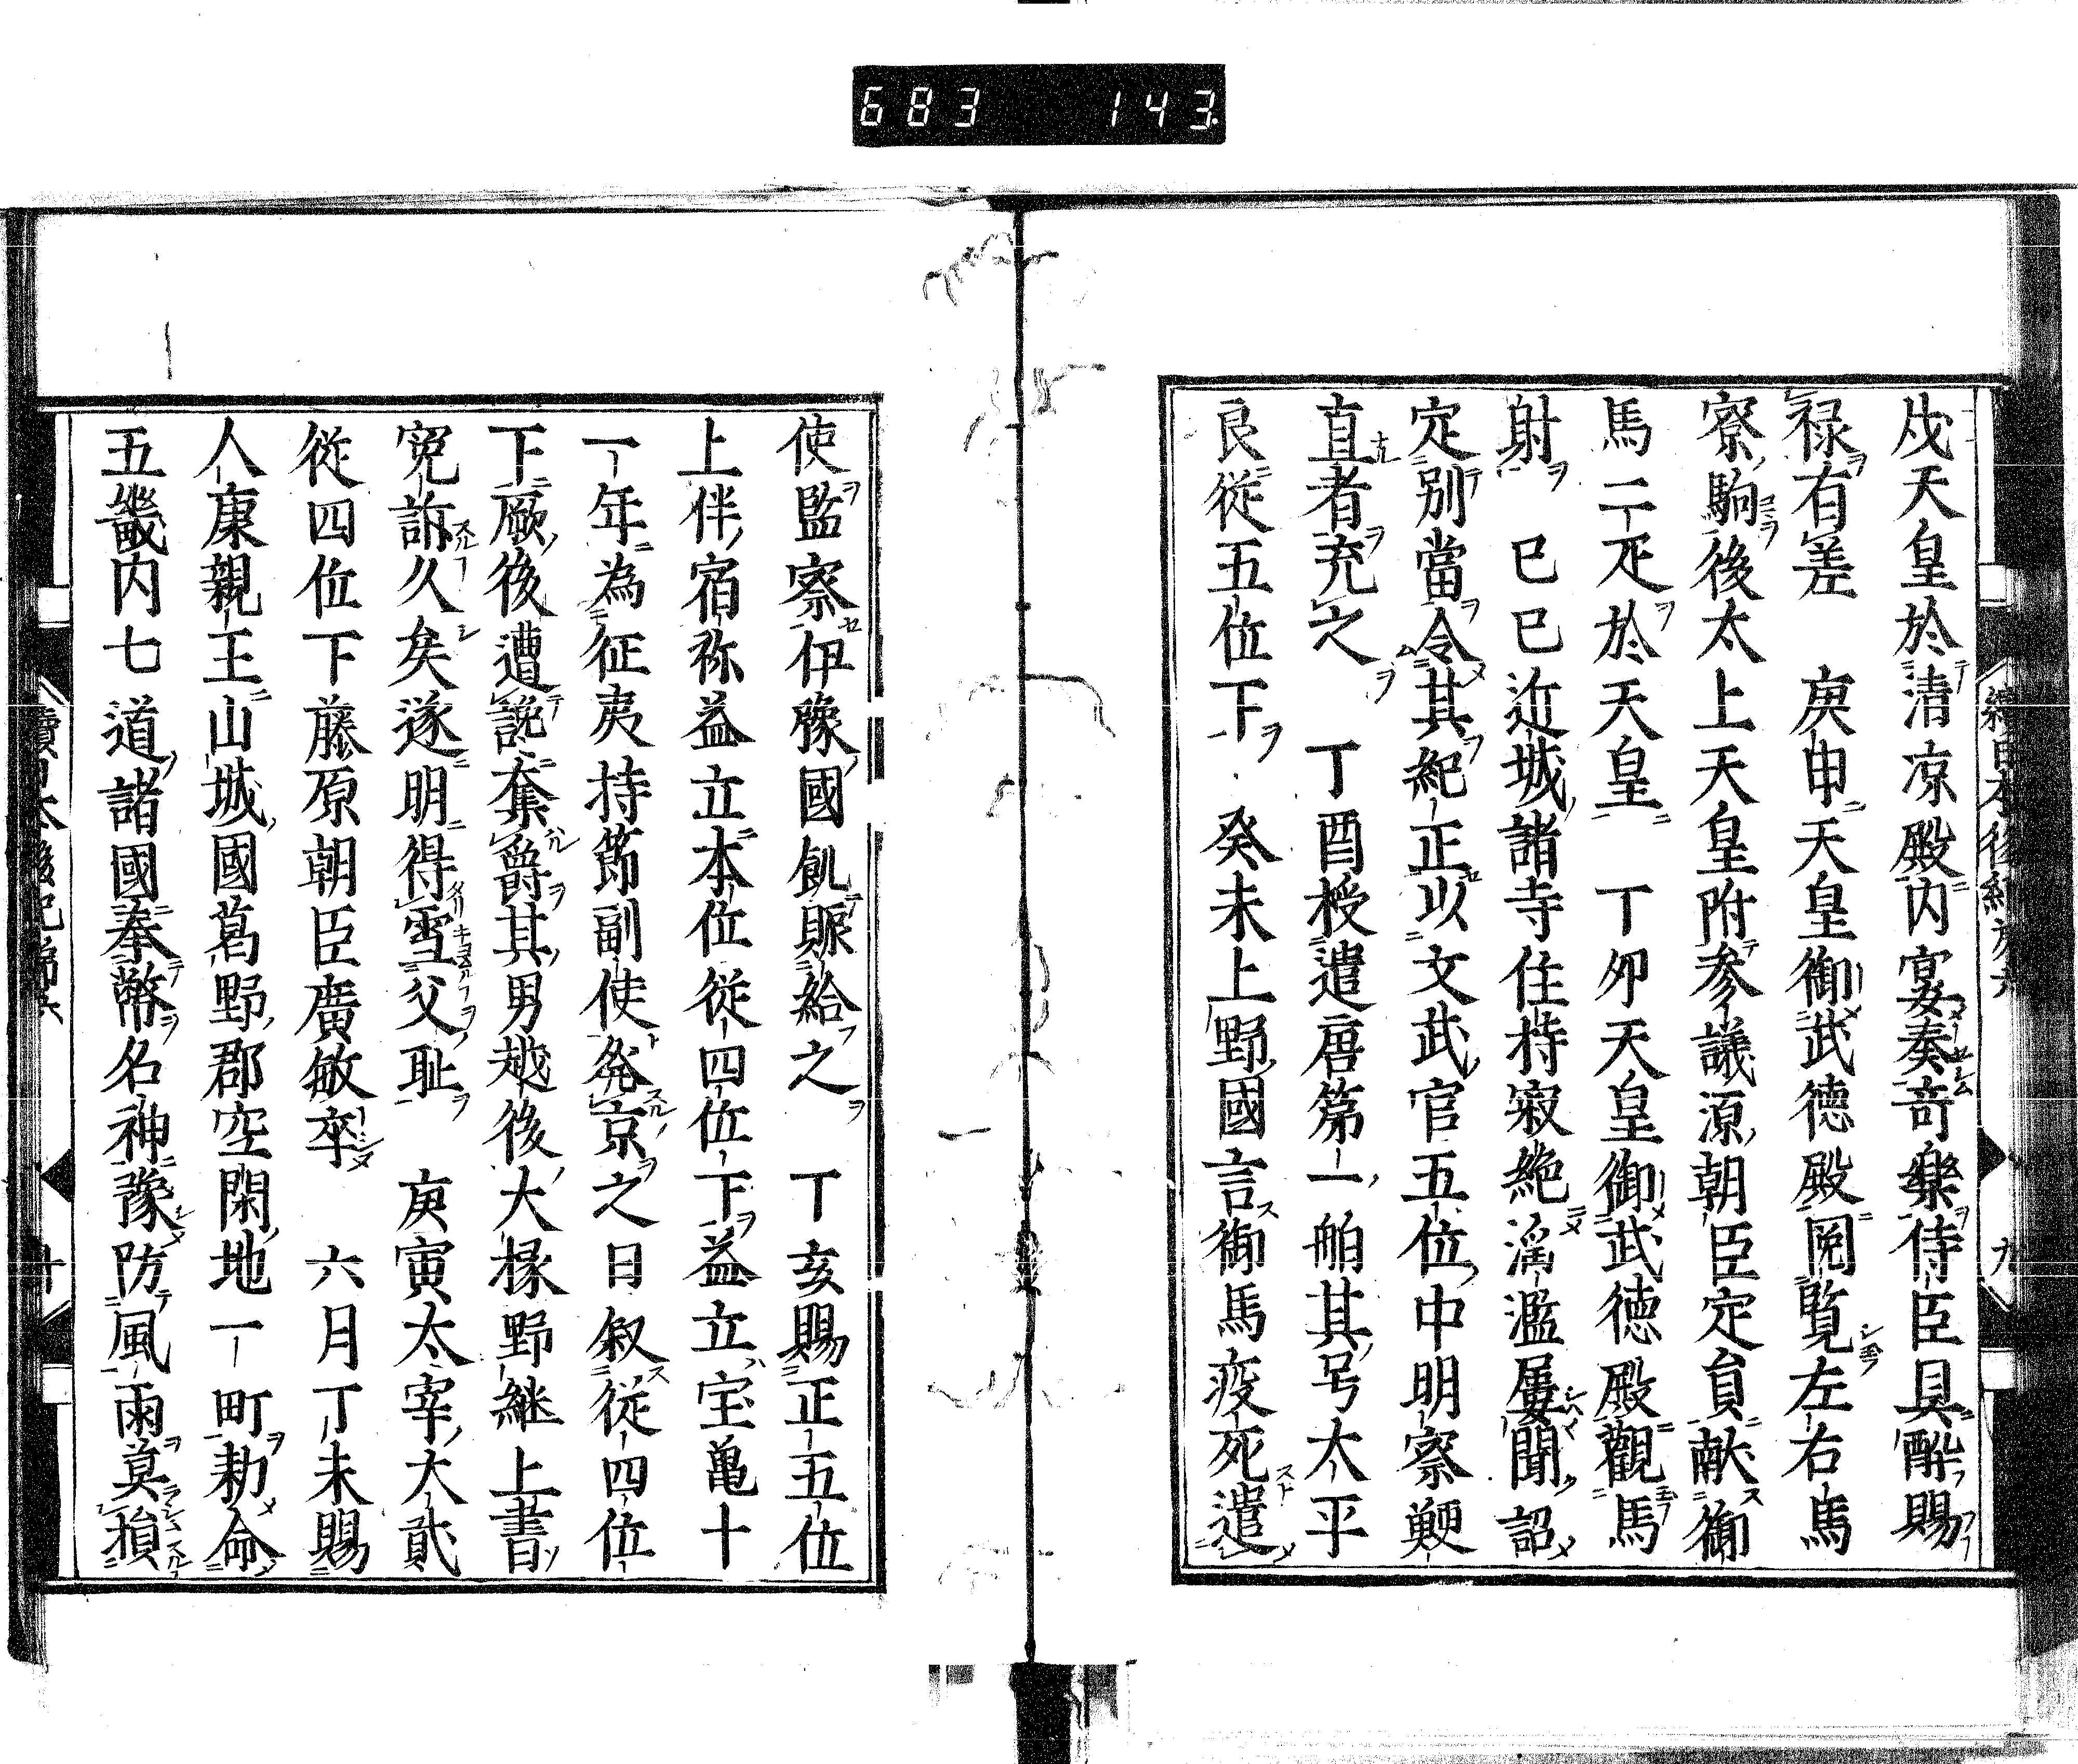 683 143
戌天皇於清涼殿内宴奏奇樂侍臣具酔賜
禄有差 庚申天皇御武德殿閲覧左右馬
寮駒後太上天皇附參議源朝臣定貟献御
馬二疋於天皇 丁夘天皇御武徳殿觀馬
射 已巳近城諸寺住持寂絶滛濫屢聞詔
定別當令其紀正以文武官五位中明察鯁
直者充之 丁酉授遣唐第一舶其号太平
良従五位下 癸未上野國言御馬疫死遣
使監察伊豫國飢賑給之 丁亥賜正五位
上伴宿祢益立本位従四位下益立宝亀十
一年為征夷持節副使発京之日叙従四位
下厥後遭讒奪爵其男越後大掾野継上書
寃訴久矣遂明得雪父耻 庚寅太宰大貮
従四位下藤原朝臣廣敏卒 六月丁未賜
人康親王山城國葛野郡空閑地一町勑命
五畿内七道諸國奉幣名神豫防風雨莫損